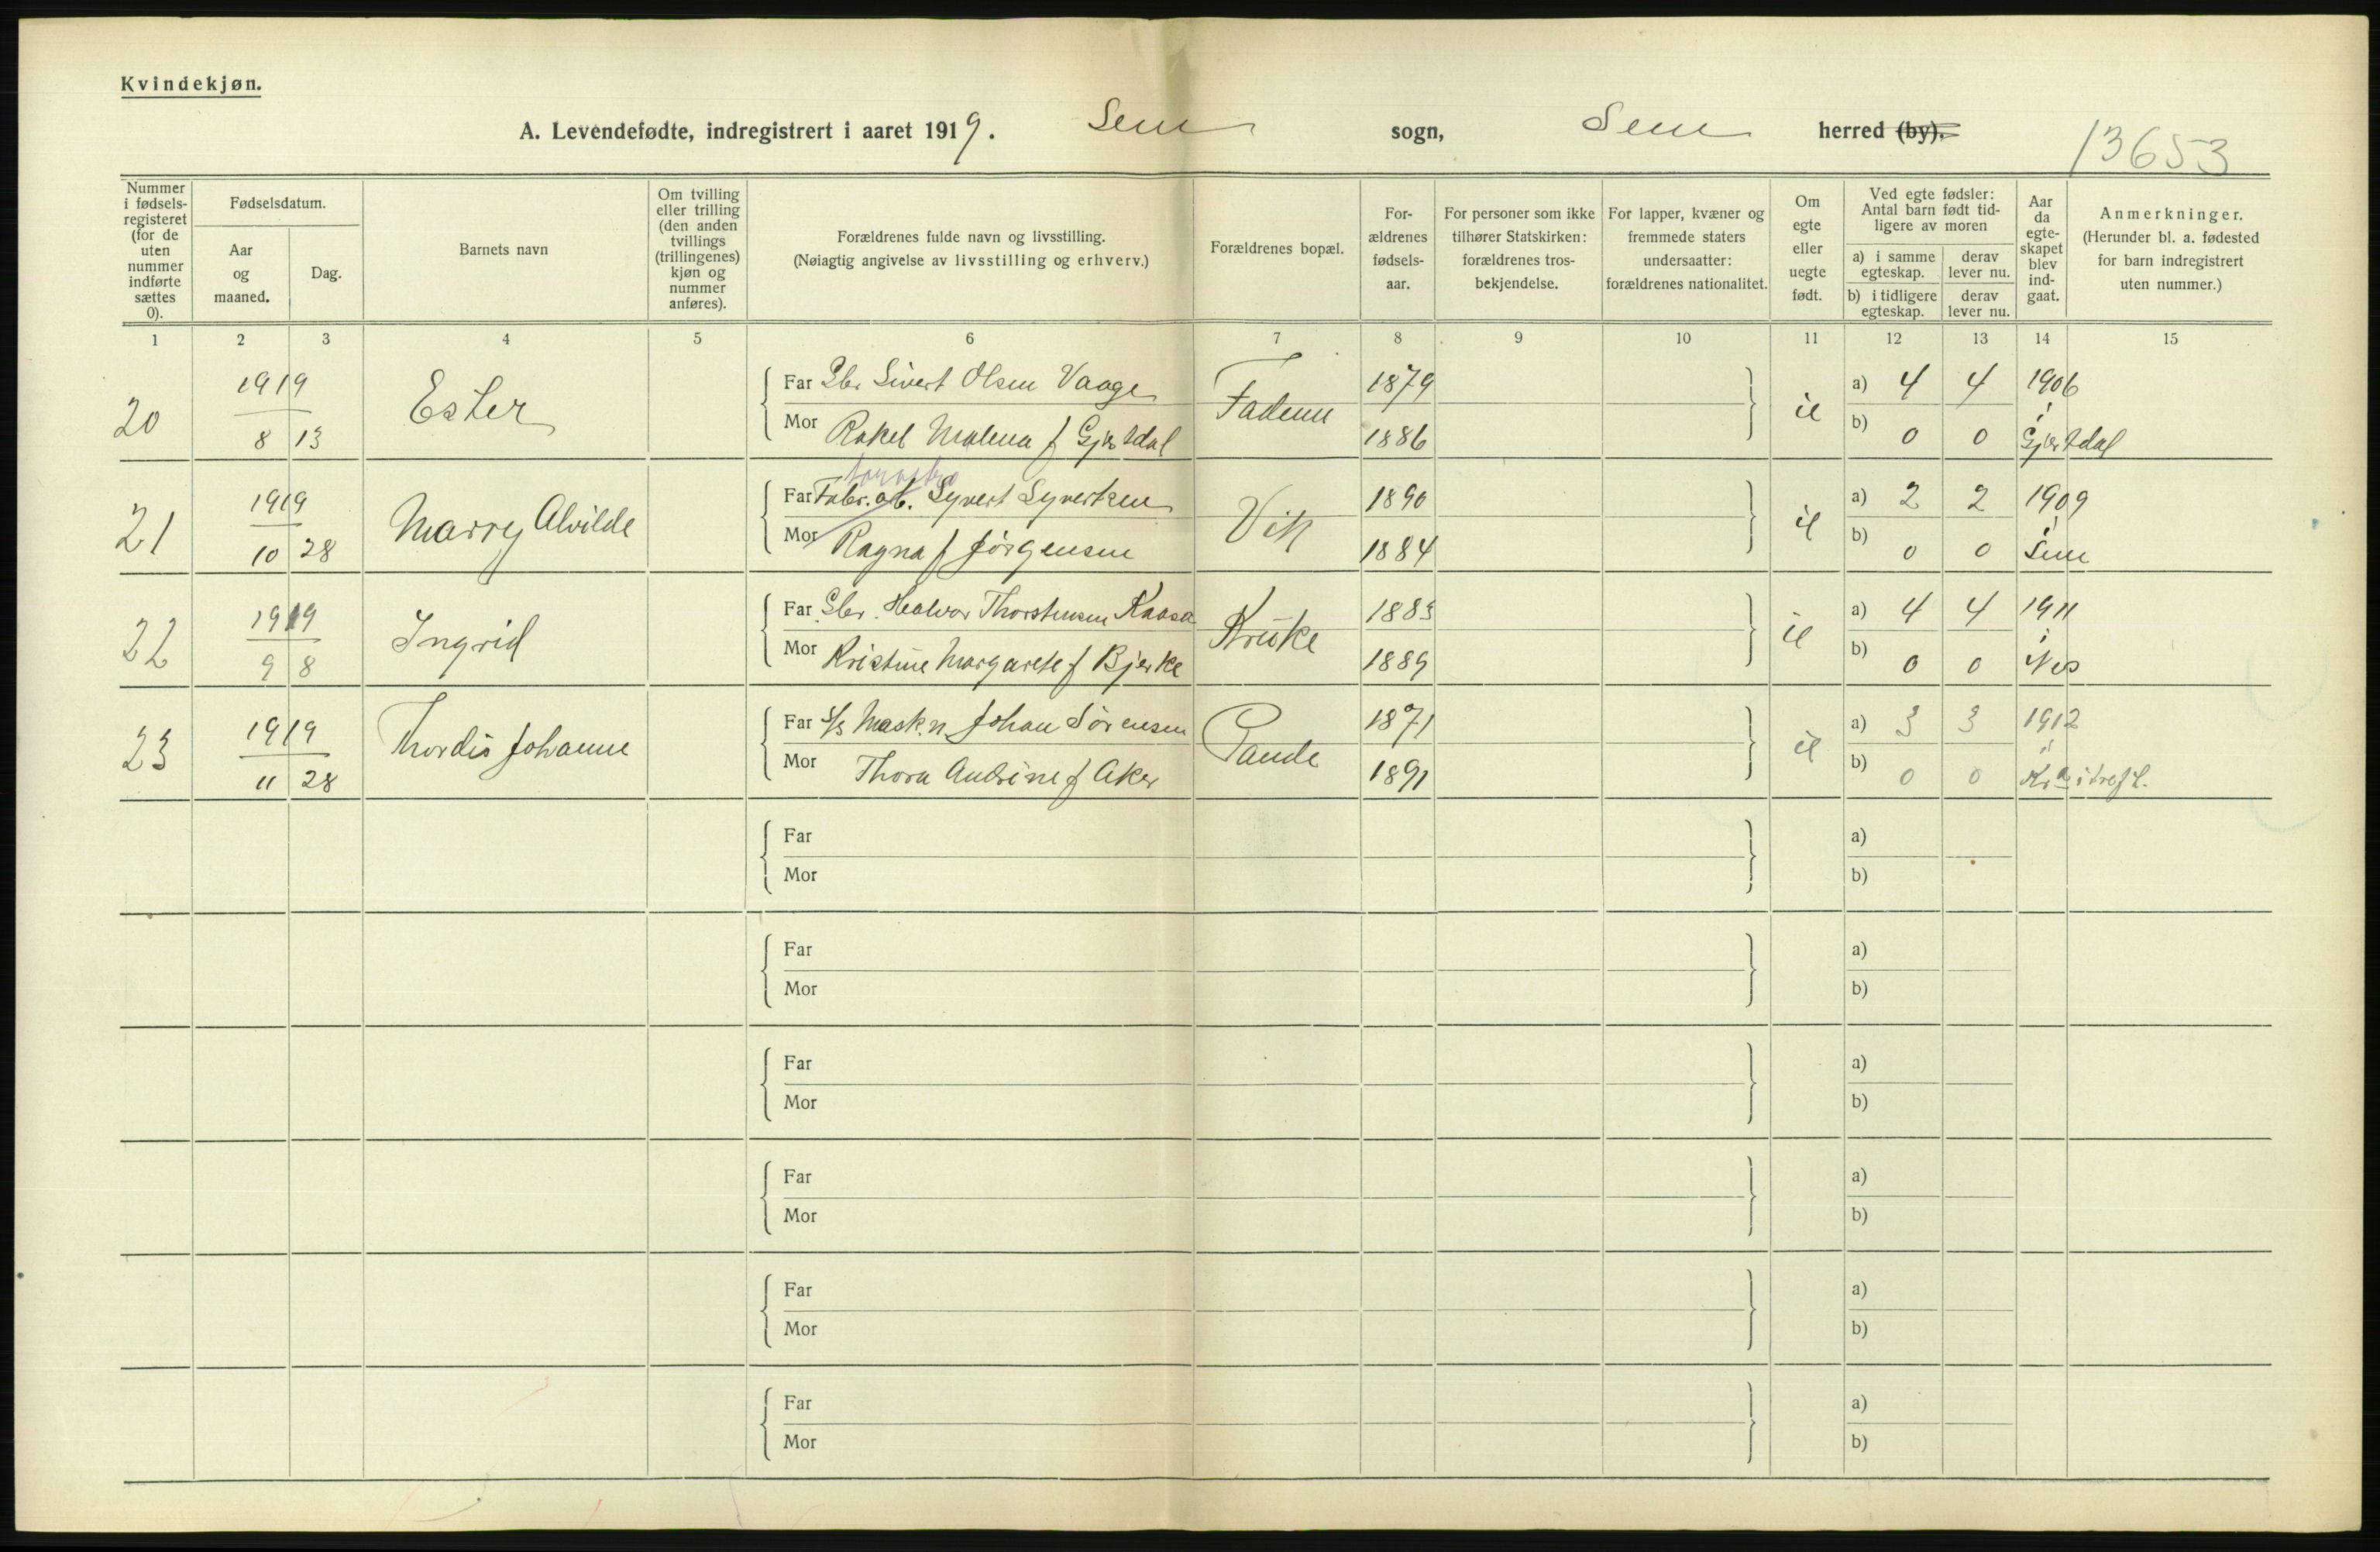 Kvindekjøn.
A. Levendefødte, indregistrert i aaret 1919. Sem sogn, Sem herred (by).
13653
Nummer i fødsels-registeret (for de uten nummer indførte sættes 0).
Fødselsdatum.
Aar og maaned.
Dag.
Barnets navn
Om tvilling eller trilling (den anden tvillings (trillingenes) kjøn og nummer anføres).
Forældrenes fulde navn og livsstilling.
(Nøiagtig angivelse av livsstilling og erhverv.)
Forældrenes bopæl.
For-ældrenes fødsels-aar.
For personer som ikke tilhører Statskirken: forældrenes tros-bekjendelse.
For lapper, kvæner og fremmede staters undersaatter: forældrenes nationalitet.
Om egte eller uegte født.
Ved egte fødsler: Antal barn født tid-ligere av moren
a) i samme egteskap.
derav lever nu.
b) i tidligere egteskap.
derav lever nu.
Aar da egte-skapet blev ind-gaat.
Anmerkninger.
(Herunder bl. a. fødested for barn indregistrert uten nummer.)
1 2 3 4 5 6 7 8 9 10 11 12 13 14 15
20 1919 8 13 Ester
Far Gbr Sivert Olsen Vaage 1879 a) 4 4 1906
Mor Rakel Malena f Gjestdal 1886 b) 0 0 i Gjestdal
Fadum
21 1919 10 28 Marry Alvilde
Far Fabr.arb. Syvert Syvertsen 1890 a) 2 2 1909
Mor Ragna f Jørgensen 1884 b) 0 0 i Sem
Vik
22 1919 9 8 Ingrid
Far Gbr. Halvor Thorstensen Kaasa 1883 a) 4 4 1911
Mor Kristine Margarete f Bjerke 1889 b) 0 0 i Nes
23 1919 11 28 Thordis Johanne
Far Maskn. Johan Sørensen 1871 a) 3 3 1912
Mor Thora Andrine f Aker 1891 b) 0 0 i Kra
Far a)
Mor b)
Far a)
Mor b)
Far a)
Mor b)
Far a)
Mor b)
Far a)
Mor b)
Far a)
Mor b)